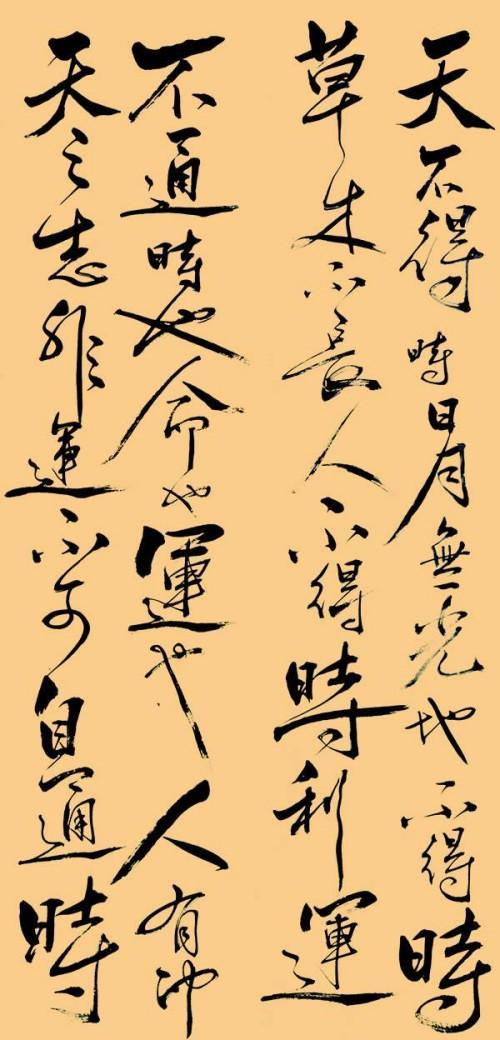 天不得時日月無光地不得時
草木不長人不得時利運
不通時也命也運也人有冲
天之志非運不可自通時